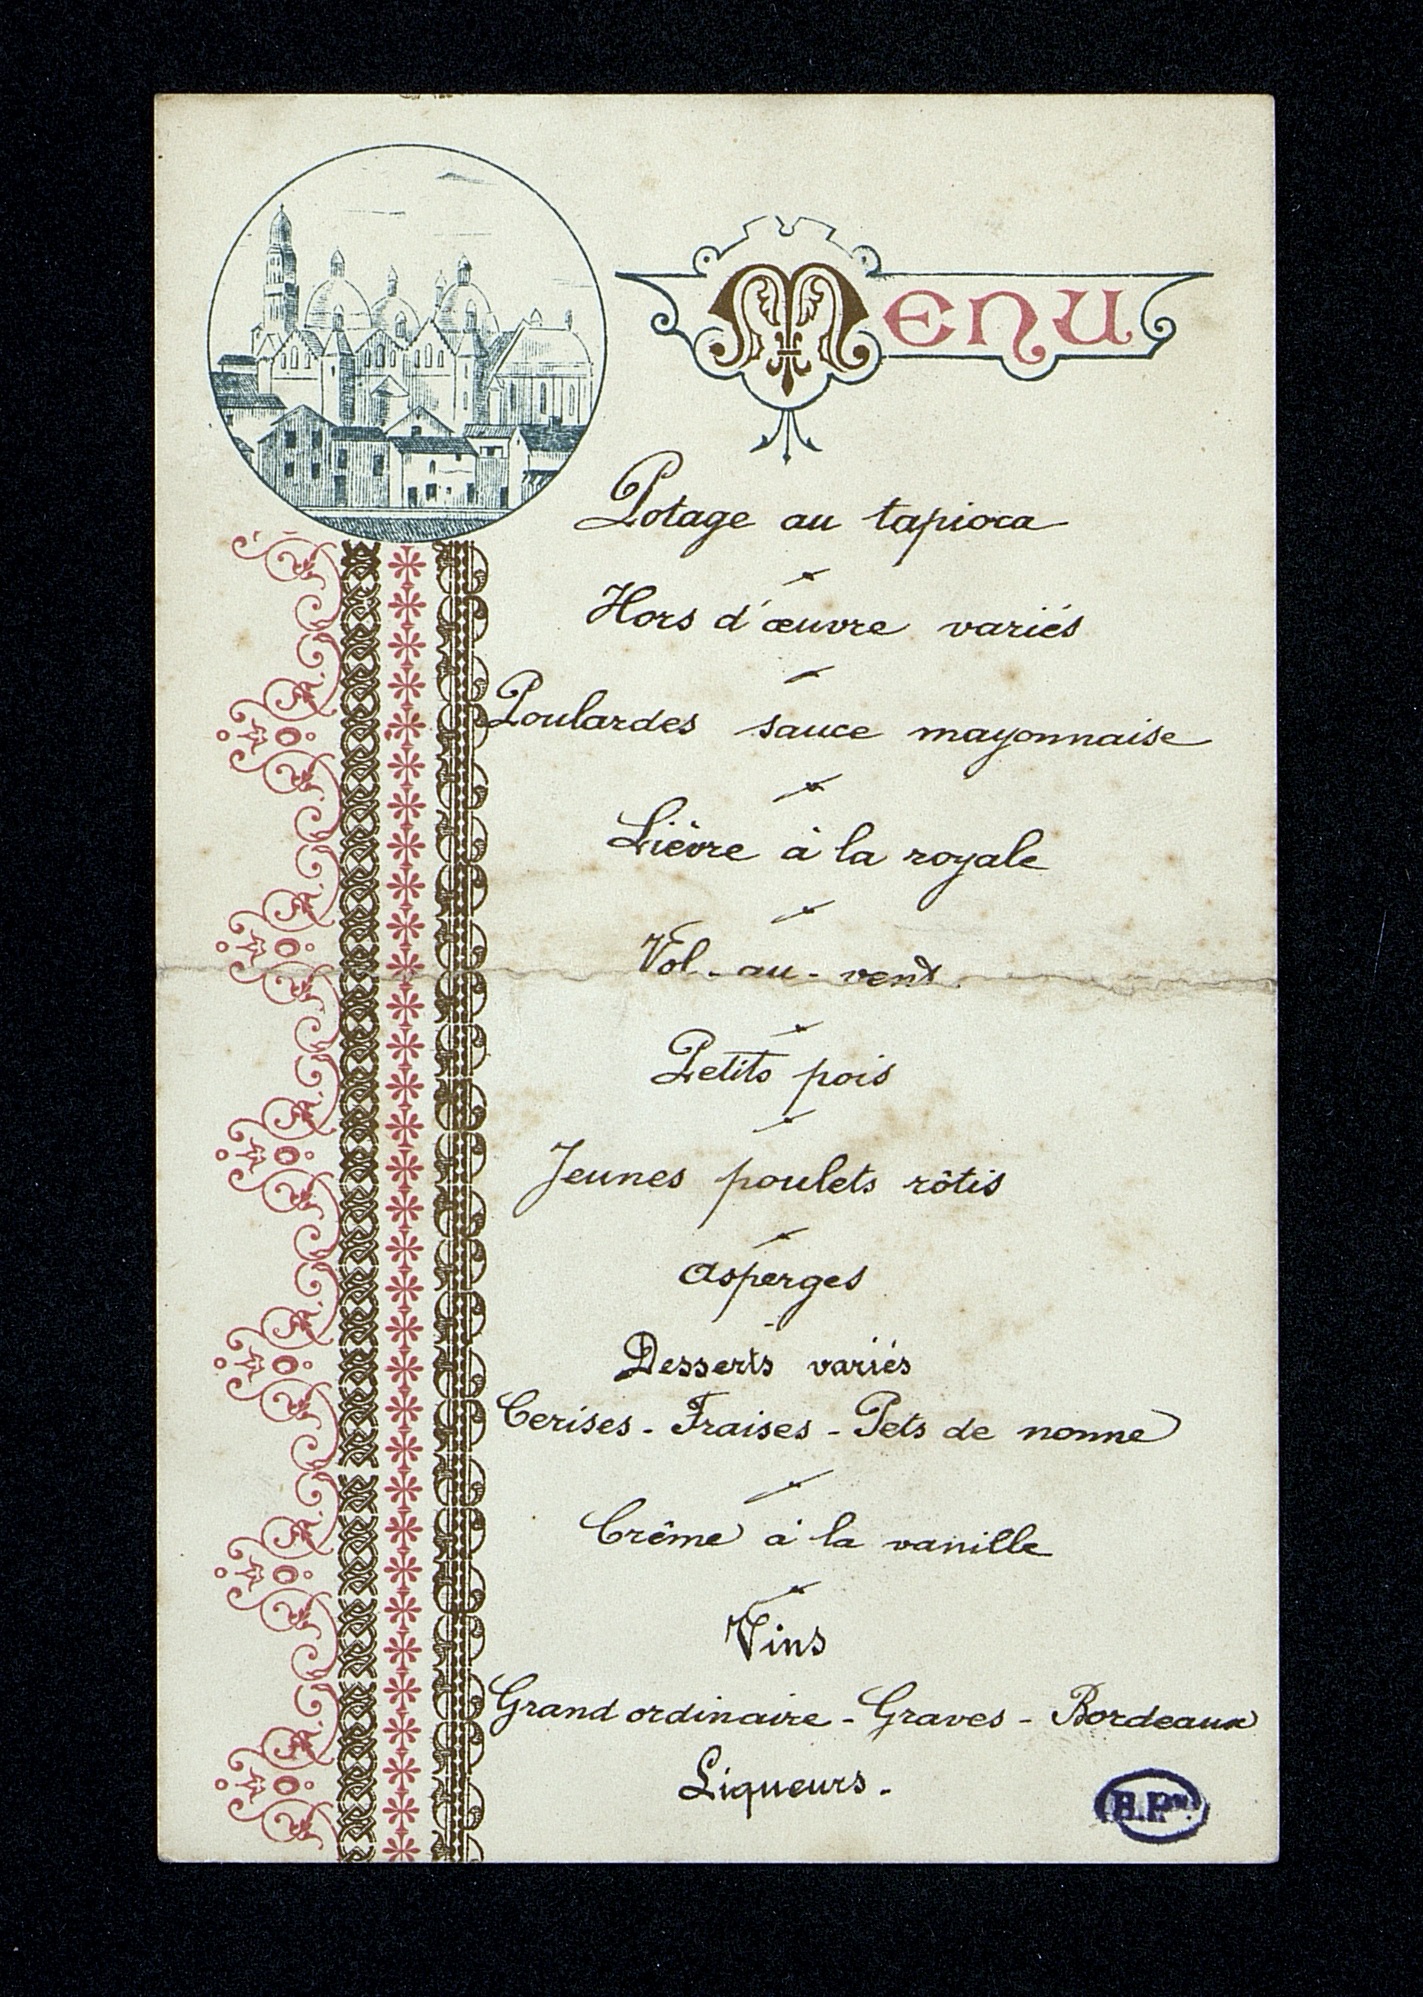 Menu
Potage au tapioca
Hors d'œuvre variés
Poulardes sauce mayonnaise
Lièvre à la royale
Vol-au-vent
Petits pois
Jeunes poulets rôtis
Asperges
Desserts variés
Cerises - Fraises - Pets de nonne
Crême à la vanille
Vins
Grand ordinaire - Graves - Bordeaux
Liqueurs.